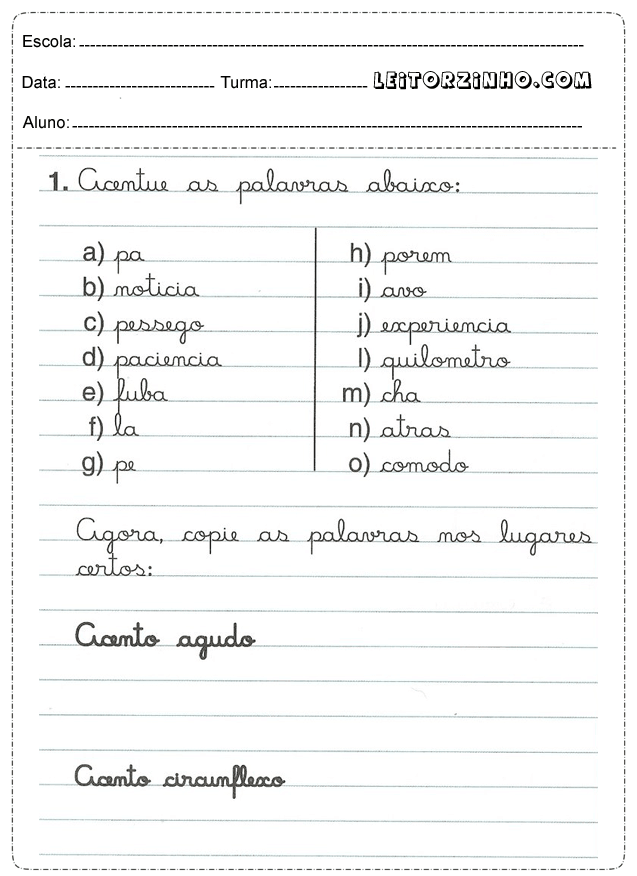 Escola:
Data: Turma: LEiTORZiNHO.COM
Aluno:
1. Acentue as palavras abaixo:
a) pa
b) noticia
c) pessego
d) paciencia
e) fuba
f) la
g) pe
h) porem
i) avo
j) experiencia
l) quilometro
m) cha
n) atras
o) comodo
Agora, copie as palavras nos lugares
certos:
Acento agudo
Acento circunflexo